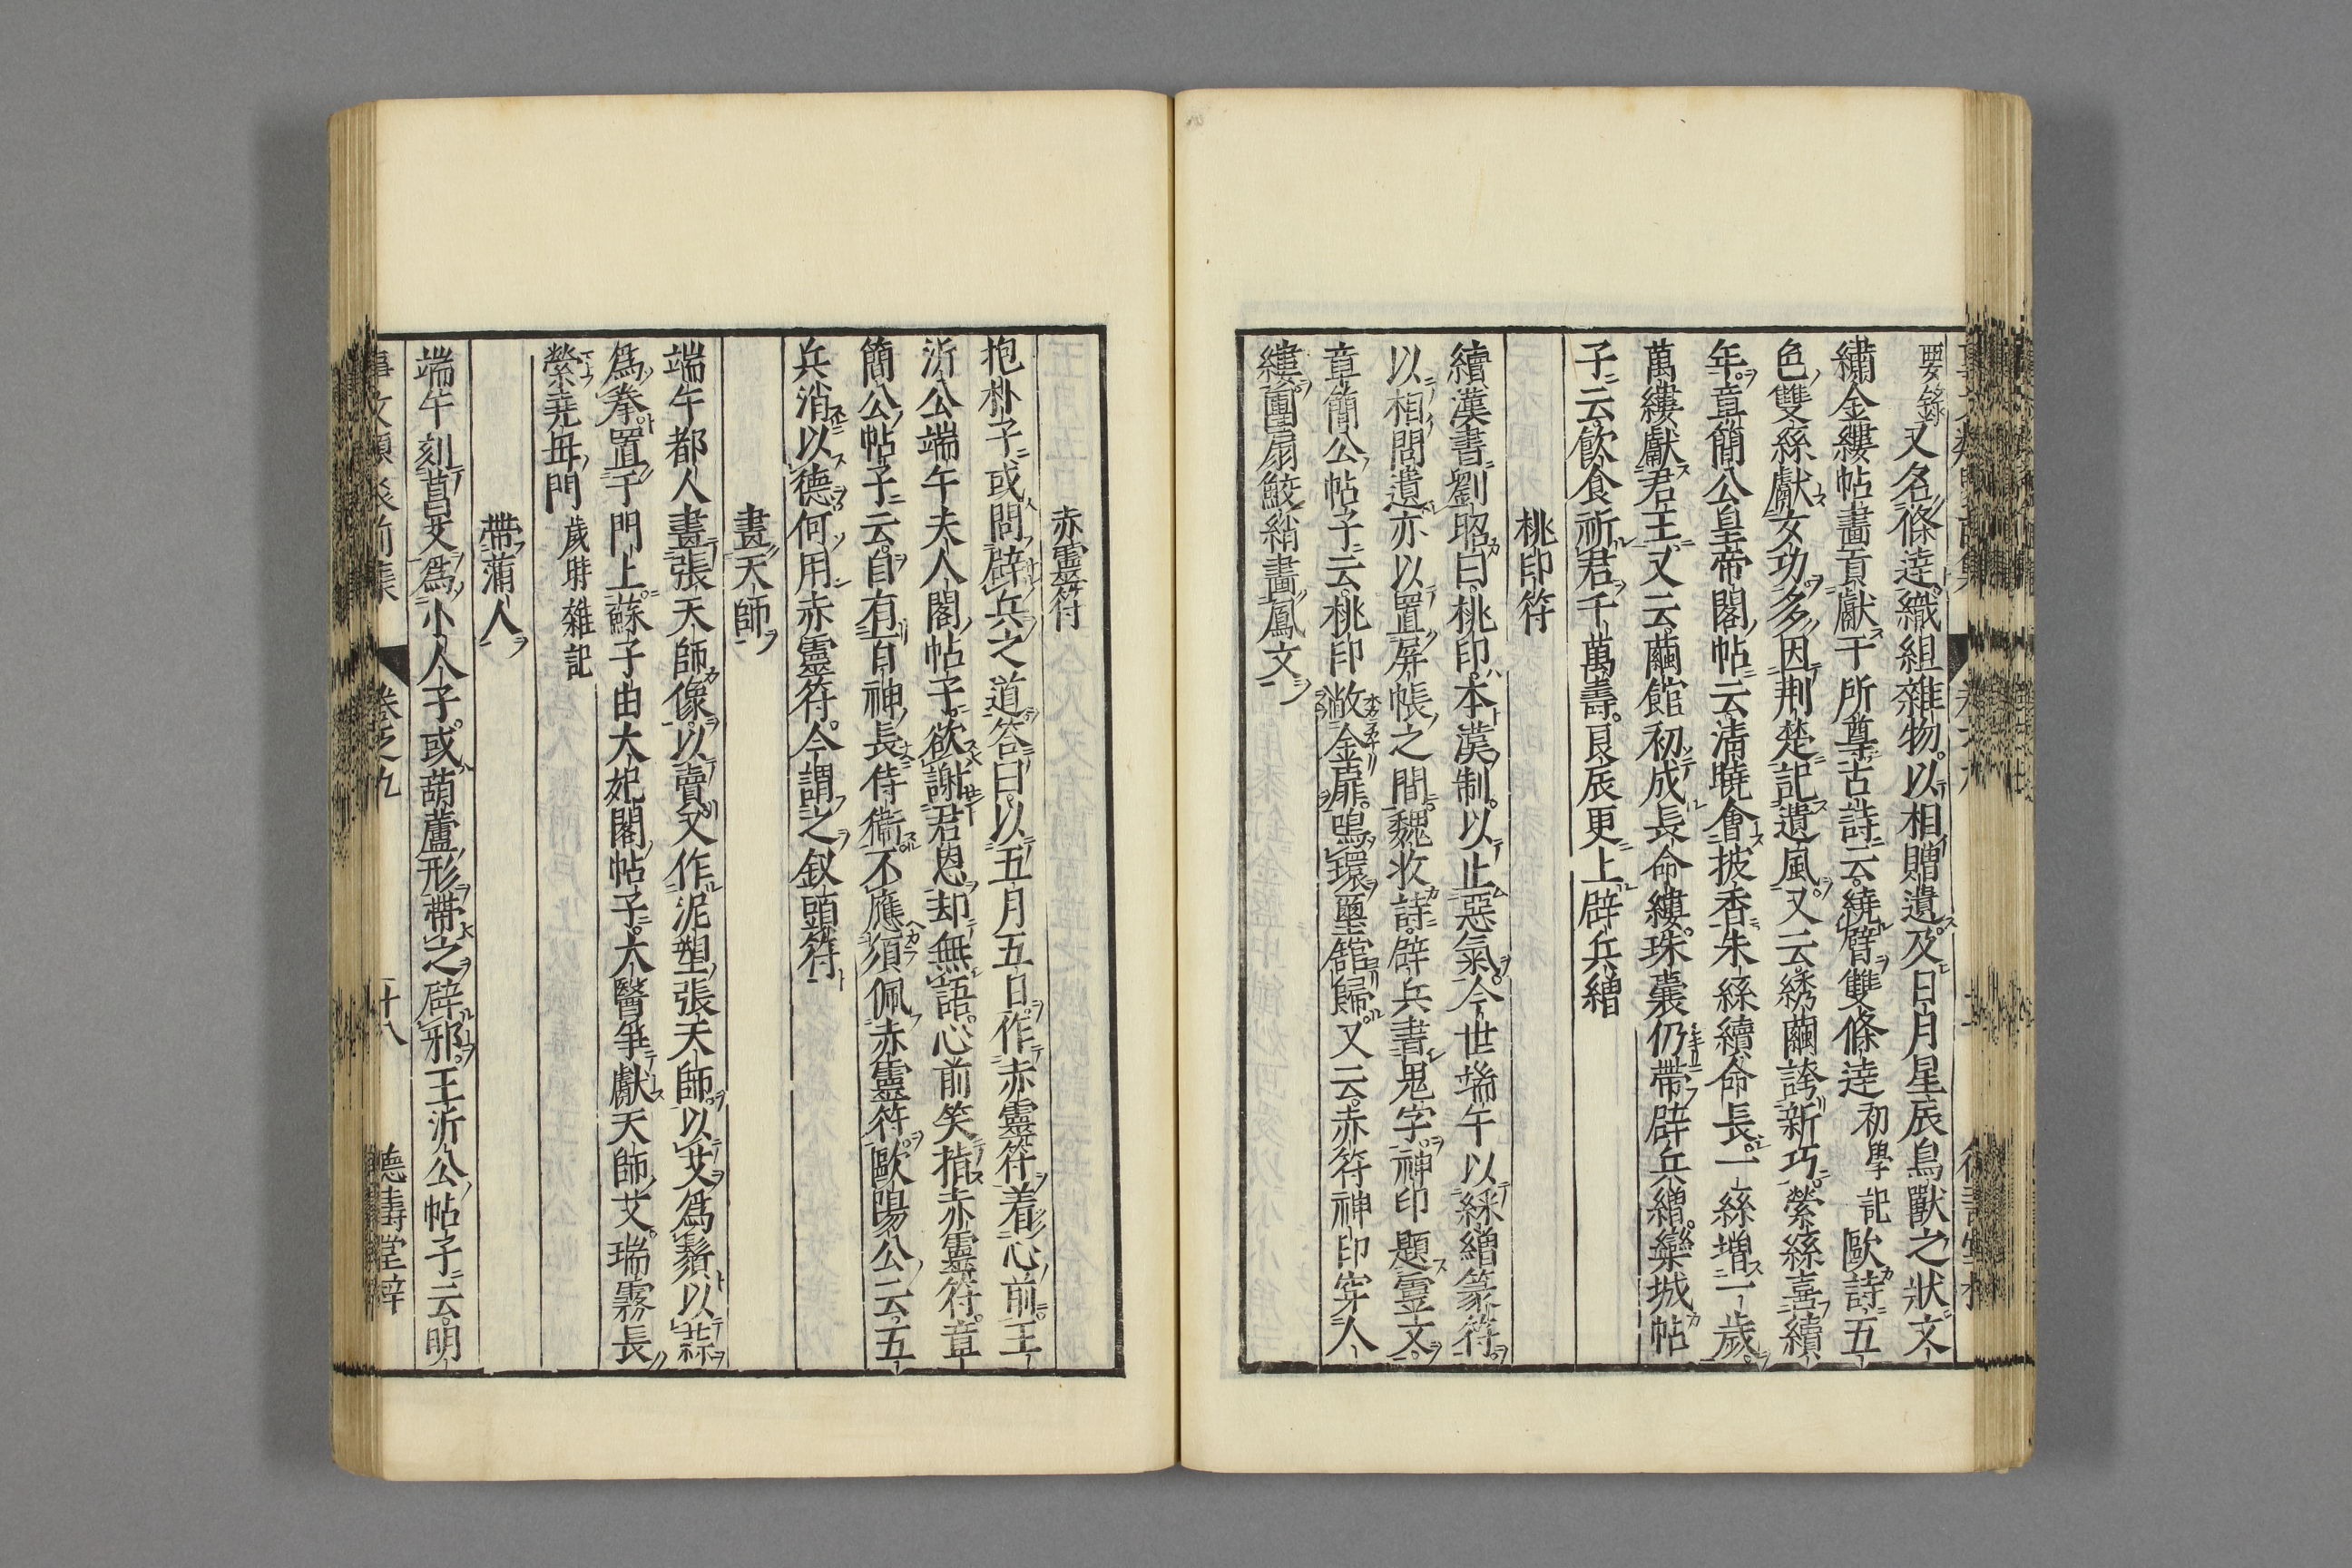 要錄又名條達織組雜物以相贈遺及日月星辰鳥獸之狀文
繡金縷帖畫貢獻于所尊古詩云繞臂雙條達初學記歐詩五
色雙絲獻女功多因荆楚記遺風又云綉繭誇新巧縈絲喜續
年章簡公皇帝閣帖云清曉會披香朱絲續命長一絲增一歲
萬縷獻君王又云繭館初成長命縷珠囊仍帶辟兵繒欒城帖
子云飲食祈君千萬壽良辰更上辟兵繒
桃印符
續漢書劉昭曰桃印本漢制以止惡氣今世端午以綵繒篆符
以相問遺亦以置屏帳之間魏收詩辟兵書鬼字神印題靈文
章簡公帖子云桃印敞金扉鳴環璽舘歸又云赤符神印穿人
縷團扇鮫綃畫鳳文
赤靈符
抱朴子或問辟兵之道答曰以五月五日作赤靈符着心前王
沂公端午夫人閣帖子欲謝君恩却無語心前笑指赤靈符章
簡公帖子云自有百神長侍衛不應須佩赤靈符歐陽公云五
兵消以德何用赤靈符今謂之釵頭符
畫天師
端午都人畫張天師像以賣又作泥塑張天師以艾爲鬚以蒜
爲拳置于門上蘇子由大妃閣帖子大醫爭獻天師艾瑞霧長
縈堯母門歲時雜記
帶蒲人
端午刻菖艾爲小人子或葫蘆形帶之辟邪王沂公帖子云明
事文類聚前集 卷之九 二十八 德壽堂梓